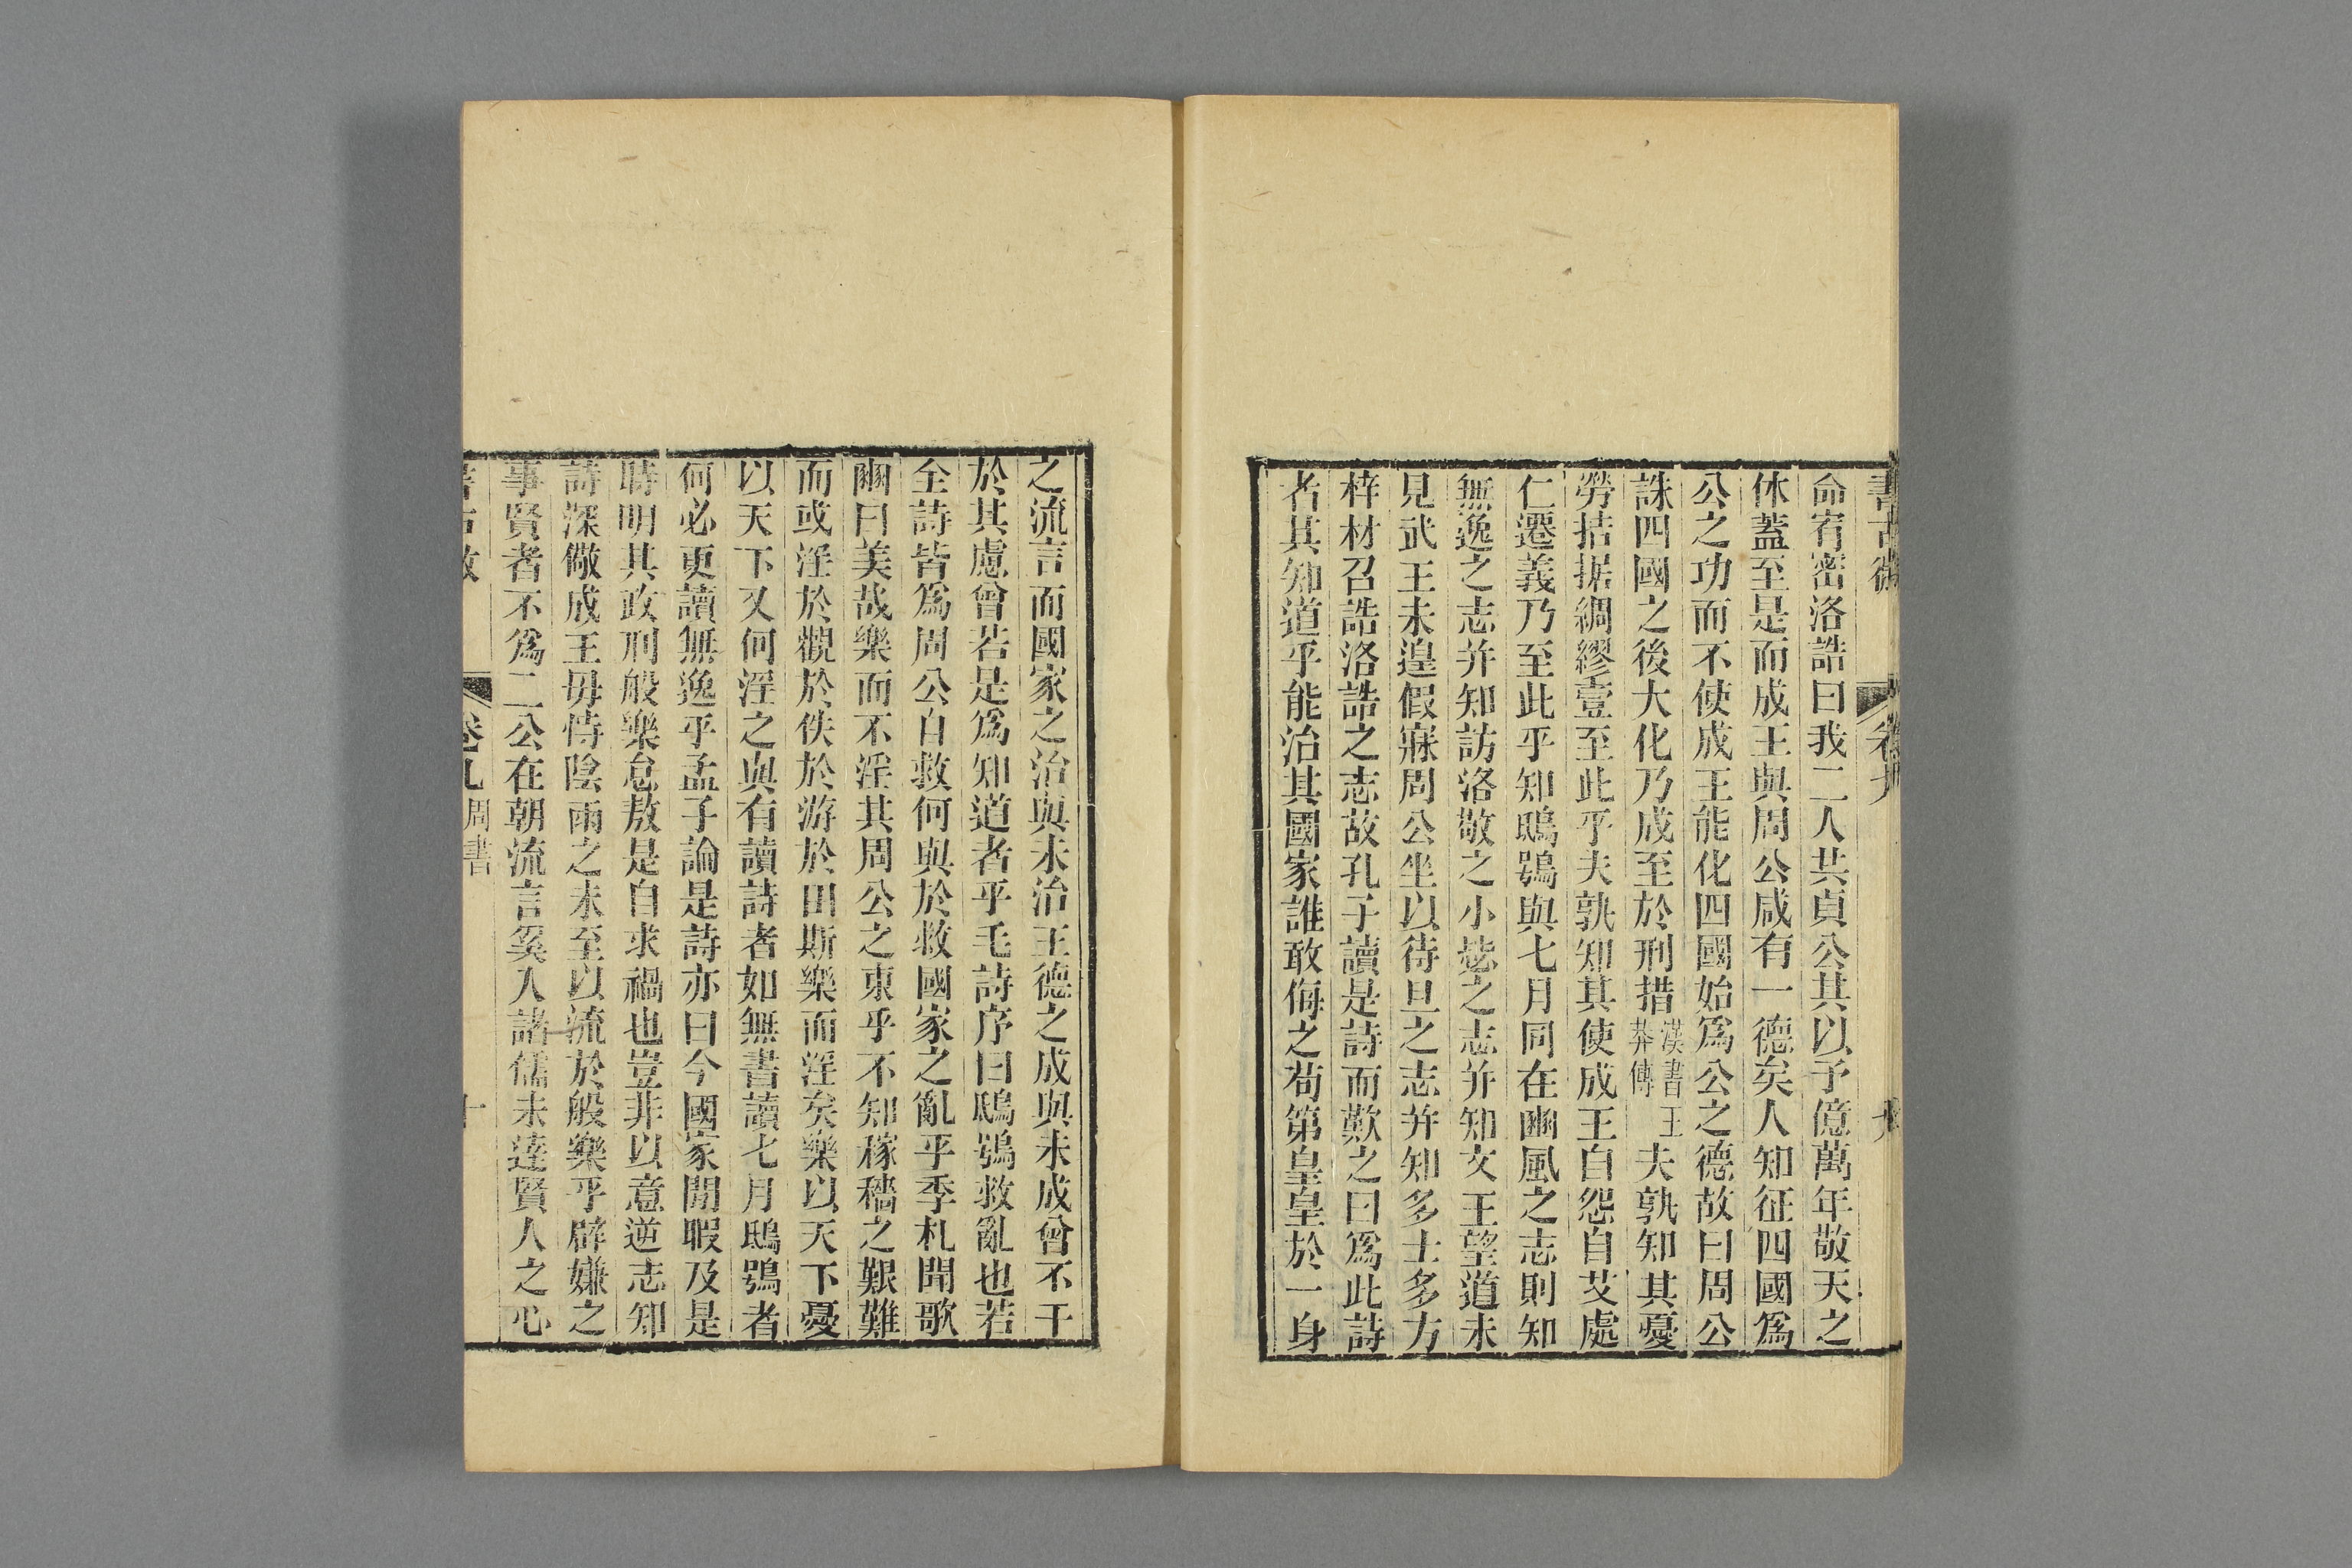 書古微　卷九　九
命宥密洛誥曰我二人共貞公其以予億萬年敬天之
休蓋至是而成王與周公咸有一德矣人知征四國爲
公之功而不使成王能化四國始爲公之德故曰周公
誅四國之後大化乃成至於刑措漢書王莽傳夫孰知其憂
勞拮据綢繆壹至此乎夫孰知其使成王自怨自艾處
仁遷義乃至此乎知鴟鴞與七月同在豳風之志則知
無逸之志并知訪洛敬之小毖之志并知文王望道未
見武王未遑假寐周公坐以待旦之志并知多士多方
梓材召誥洛誥之志故孔子讀是詩而歎之曰爲此詩
者其知道乎能治其國家誰敢侮之苟第皇皇於一身
之流言而國家之治與未治王德之成與未成曾不干
於其慮曾若是爲知道者乎毛詩序曰鴟鴞救亂也若
全詩皆爲周公自救何與於救國家之亂乎季札聞歌
豳曰美哉樂而不淫其周公之東乎不知稼穡之艱難
而或淫於觀於佚於游於田斯樂而淫矣樂以天下憂
以天下又何淫之與有讀詩者如無書讀七月鴟鴞者
何必更讀無逸乎孟子論是詩亦曰今國家閒暇及是
時明其政刑般樂怠敖是自求禍也豈非以意逆志知
詩深儆成王毋恃陰雨之未至以流於般樂乎辟嫌之
事賢者不爲二公在朝流言奚入諸儒未達賢人之心
書古微　卷九周書　十